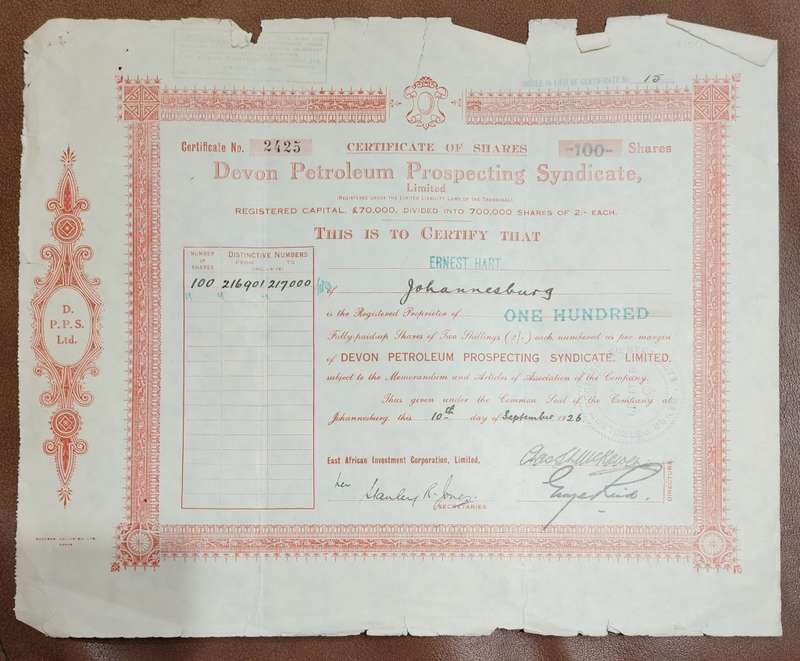 ISSUED IN LIEU OF CERTIFICATE No. 15
Certificate No. 2425 CERTIFICATE OF SHARES -100- Shares
Devon Petroleum Prospecting Syndicate,
Limited
(REGISTERED UNDER THE LIMITED LIABILITY LAWS OF THE TRANSVAAL)
REGISTERED CAPITAL, £70,000, DIVIDED INTO 700,000 SHARES OF 2/- EACH.
THIS IS TO CERTIFY THAT
ERNEST HART
of Johannesburg
is the Registered Proprietor of ONE HUNDRED
Fully-paid-up Shares of Two Shillings (2/-) each, numbered as per margin
of DEVON PETROLEUM PROSPECTING SYNDICATE, LIMITED,
subject to the Memorandum and Articles of Association of the Company.
Thus given under the Common Seal of the Company at
Johannesburg, this 10th day of September 1926
NUMBER OF SHARES
DISTINCTIVE NUMBERS
FROM TO
(INCLUSIVE)
100 216901 217000
D.
P.P.S.
Ltd.
East African Investment Corporation, Limited,
per Stanley R. Jones.
SECRETARIES
DIRECTORS